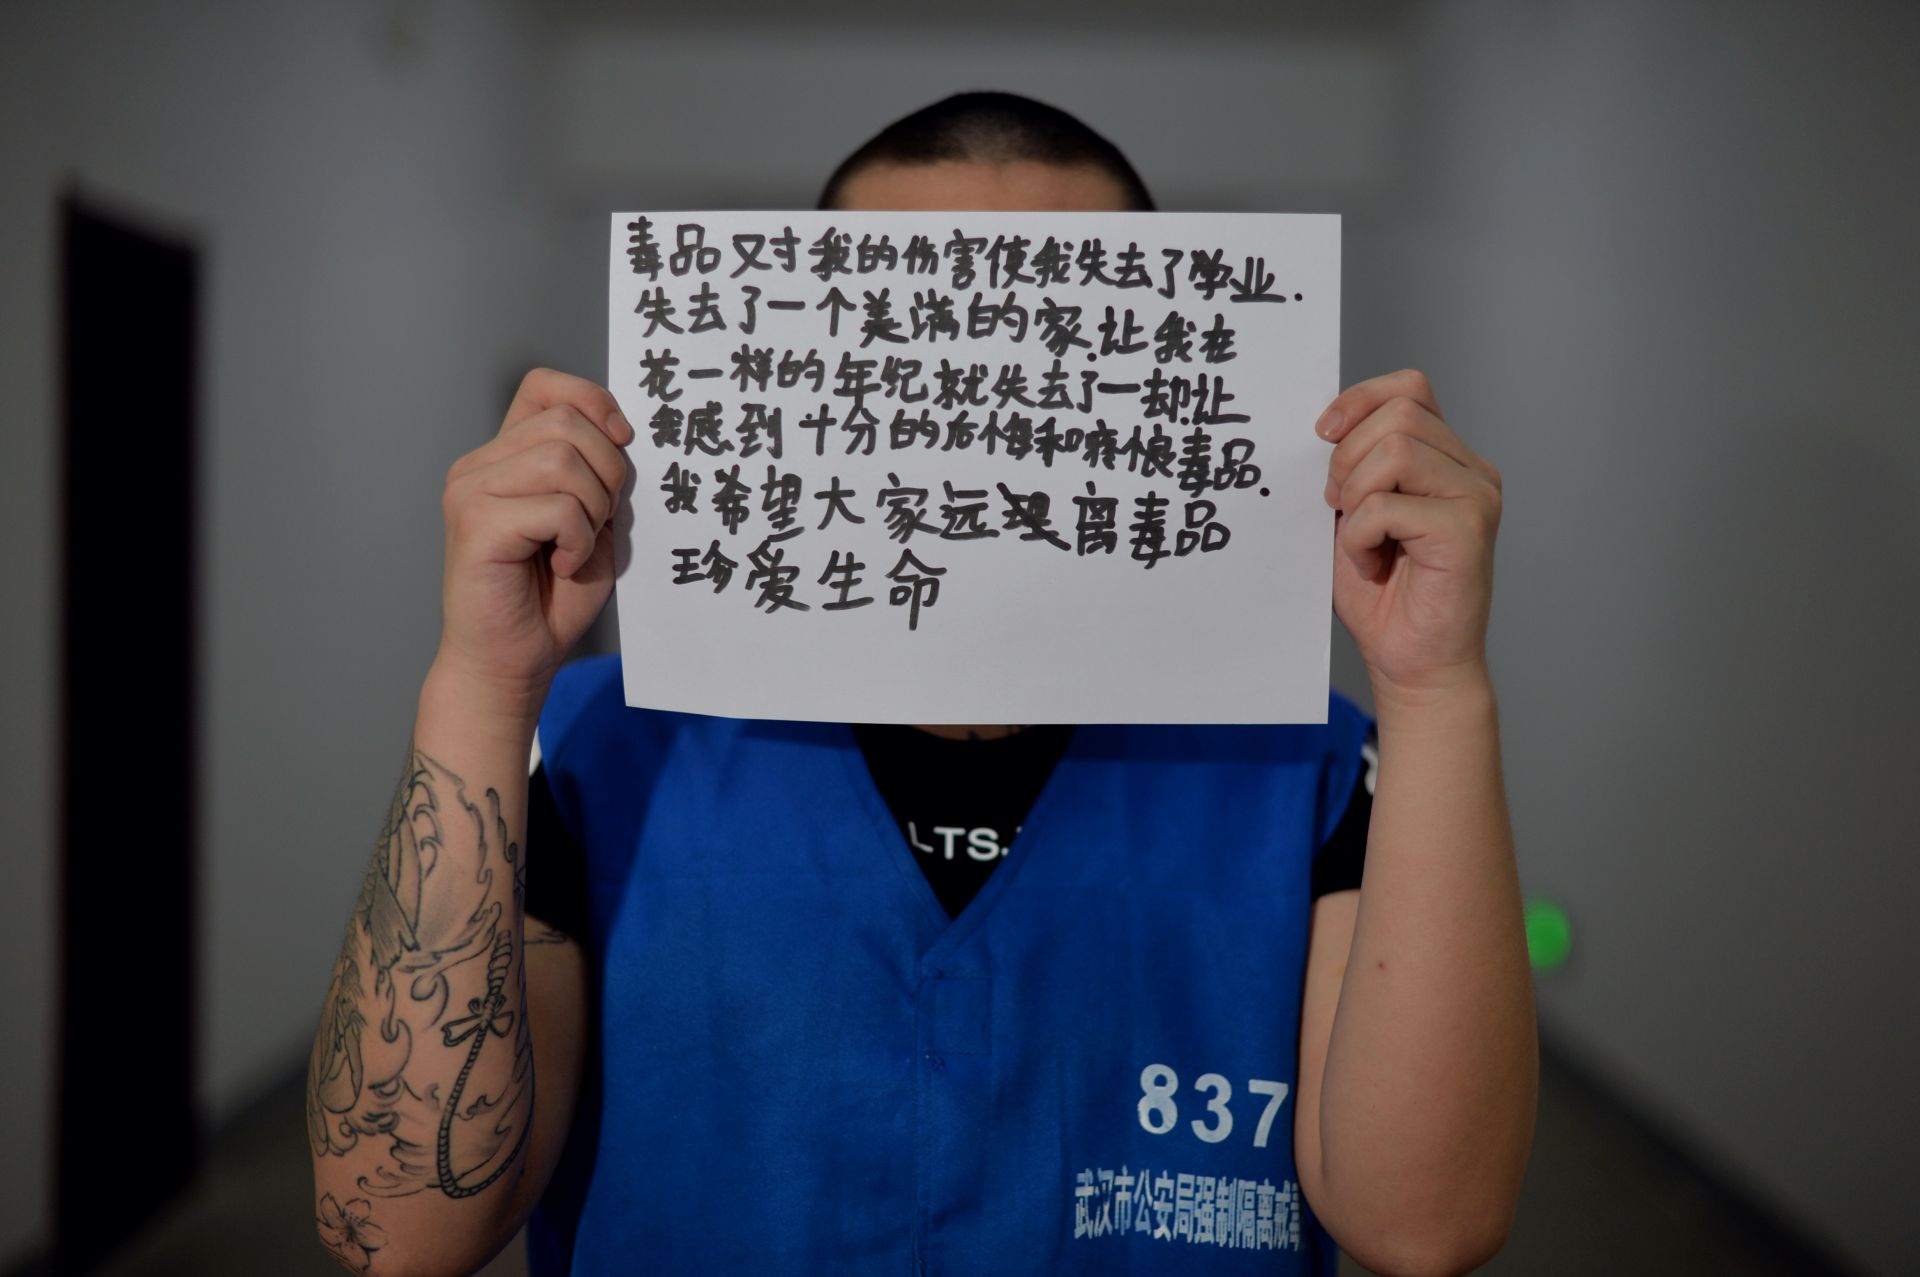 毒品对我的伤害使我失去了学业.
失去了一个美满的家.让我在
花一样的年纪就失去了一却.让
我感到十分的后悔和疼恨毒品.
我希望大家远离毒品
珍爱生命
LTS.
837
武汉市公安局强制隔离戒毒